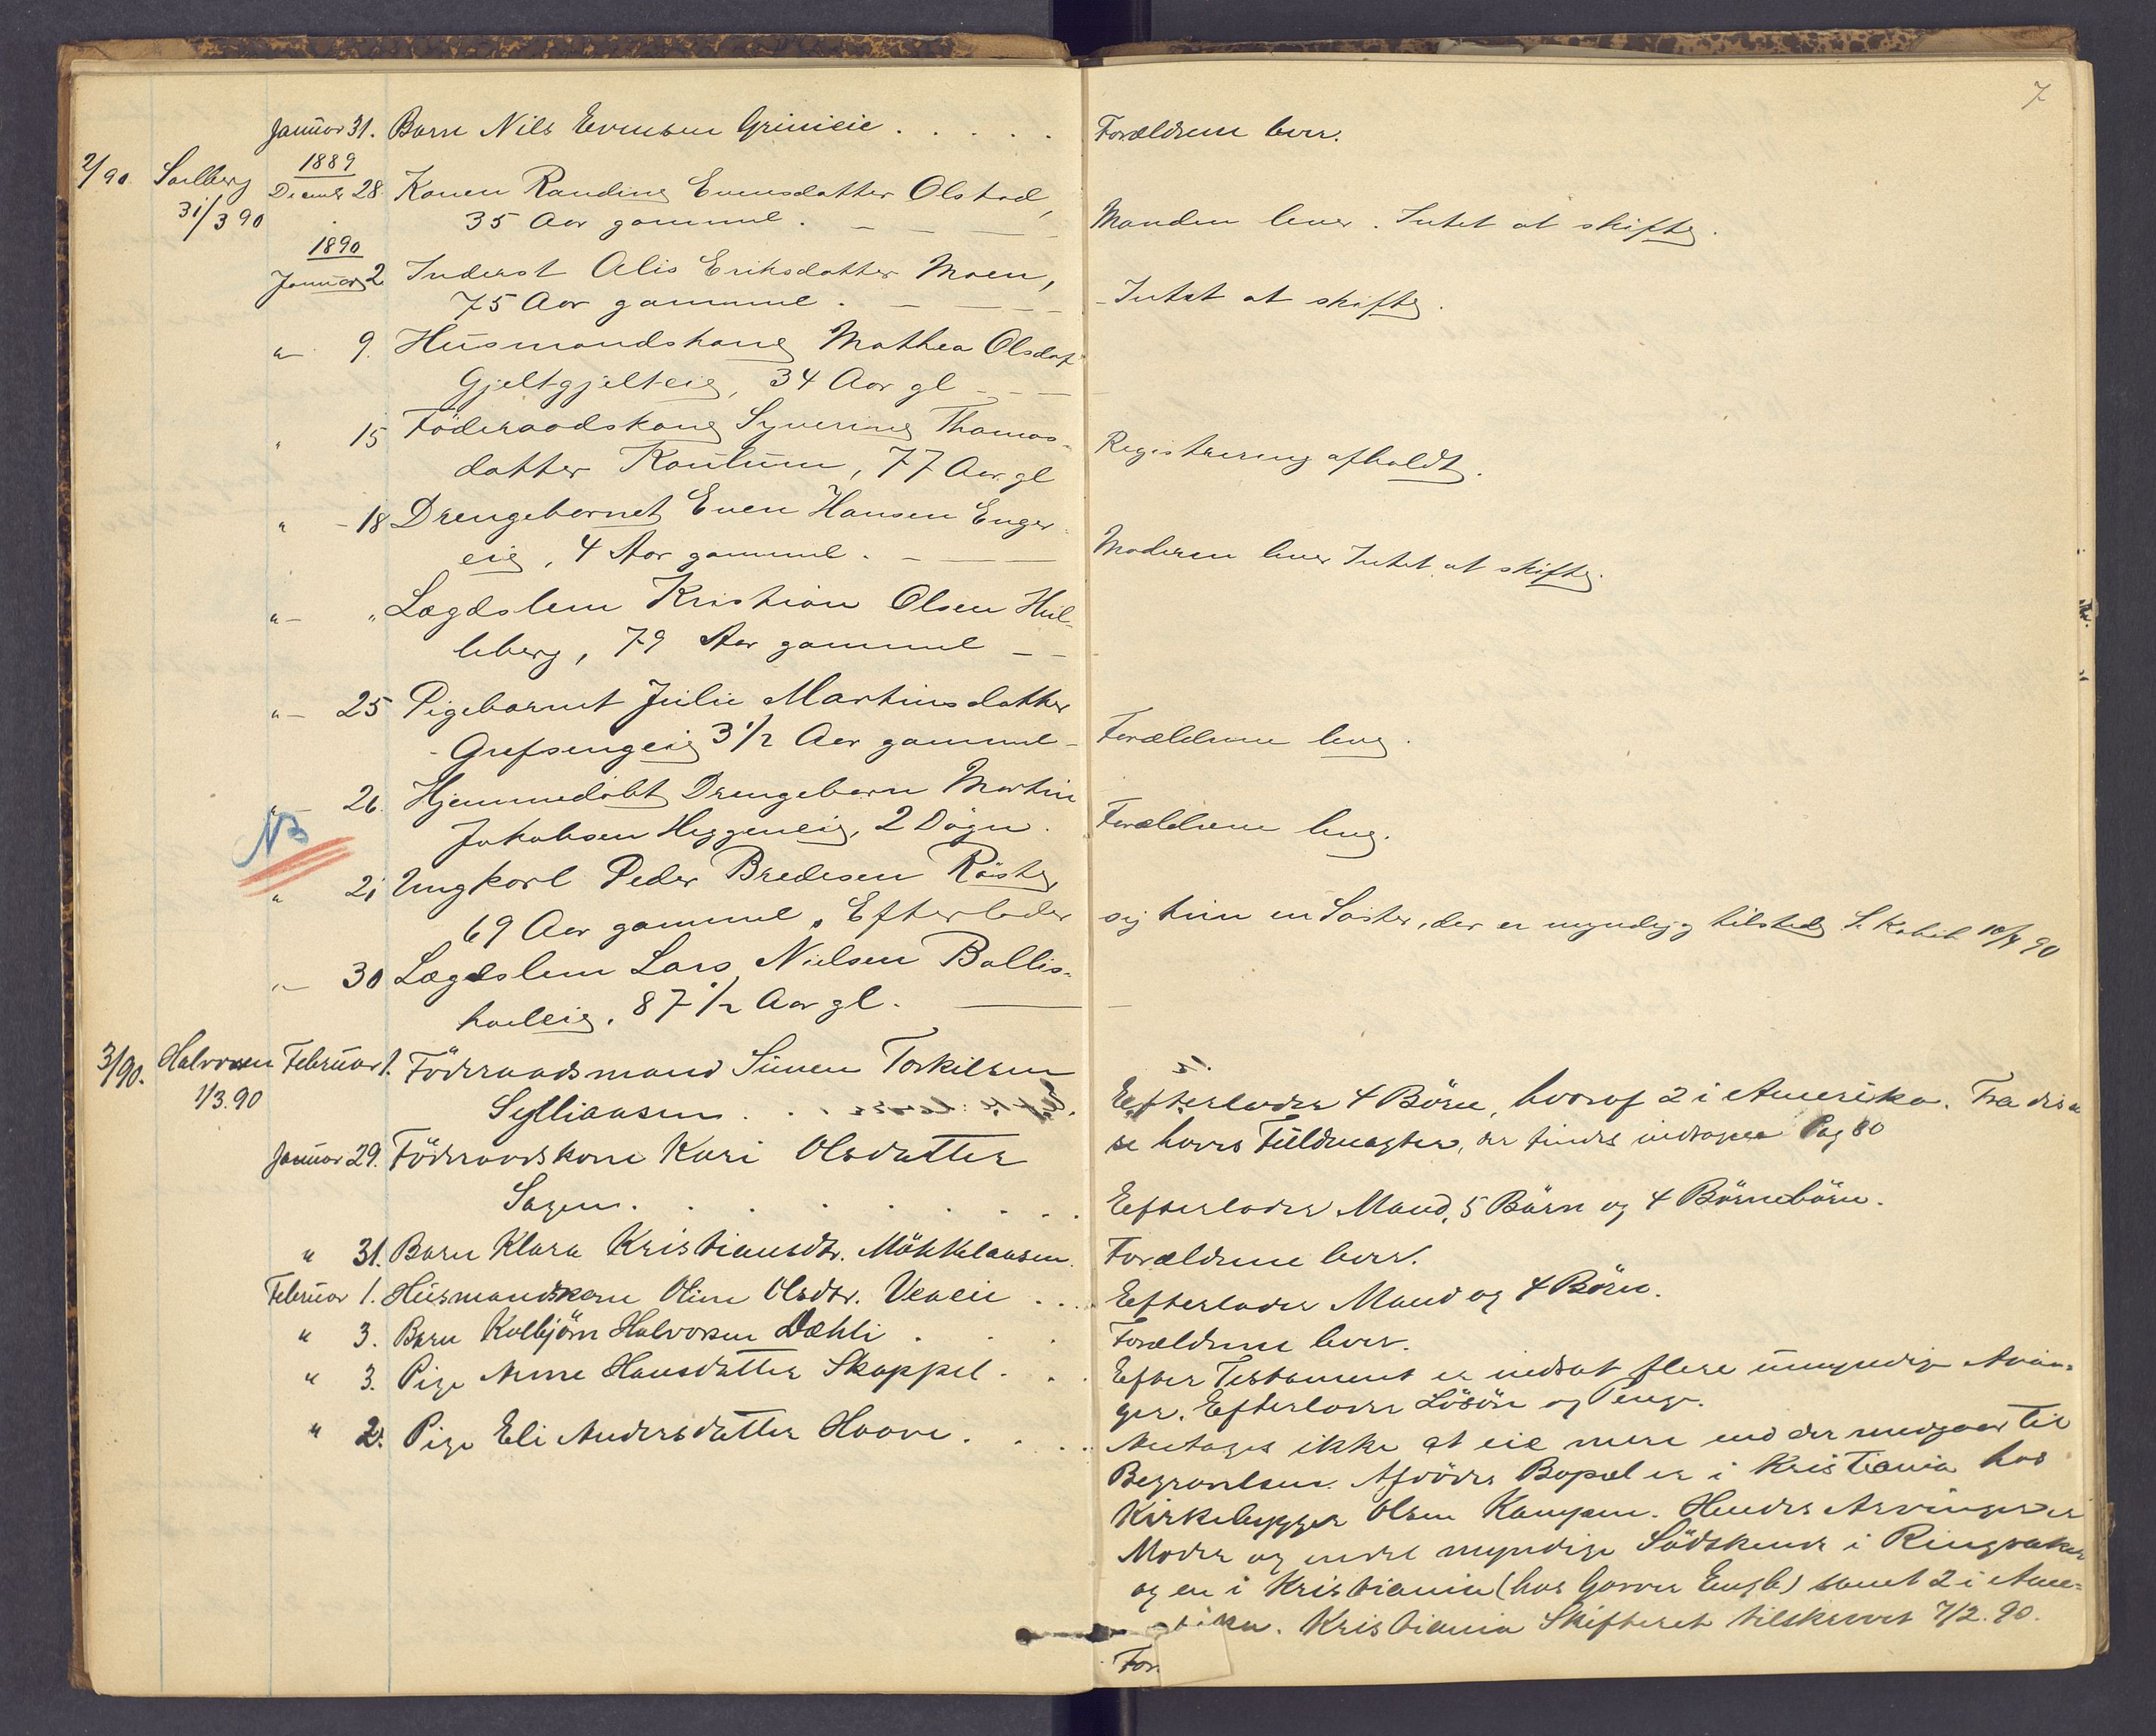 7
Januar 31. Barn Nils Evensen Grinieie . . . . . Forældrene lever.
2/90. Sollberg 1889
Decemb 28. Konen Randine Evensdatter Olstad,
31/3 90 35 Aar gammel. Manden lever. Intet at skifte.
1890
Januar 2 Inderst Alis Eriksdatter Moen,
75 Aar gammel. Intet at skifte.
" 9. Husmandskone Mathea Olsdat
Gjeltgjelteie, 34 Aar gl
" 15 Föderaadskone Syverine Thomas-
datter Rautum, 77 Aar gl Registrering afholdt.
" - 18 Drengebarnet Even Hansen Enger-
eie, 4 Aar gammel. Moderen lever Intet at skifte.
" - " Lægdslem Kristian Olsen Hil-
leberg, 79 Aar gammel
" - 25 Pigebarnet Julie Martinsdatter
Grefsengeie 3 1/2 Aar gammel - Forældrene leve.
" - 26. Hjemmedøbt Drengebarn Martin
NB Jakobsen Heggeneie, 2 Døgn. Forældrene leve.
" 21 Ungkarl Peder Bredesen Röste,
69 Aar gammel. Efterlader sig kun en Søster, der er myndig og tilstede 10/4 90
" - 30 Lægdslem Lars Nielsen Ballis-
houleie, 87 1/2 Aar gl.
3/90. Halvorsen Februar 1. Föderaadsmand Simen Torkilsen
1/3.90 Sylliaasen . . Efterlader 4 Börn, hvoraf 2 i Amerika. Fra dis-
se haves Fuldmagter, der findes indtagne Pag 80
Januar 29. Föderaadskone Kari Olsdatter
Sagen. . . . . . . . Efterlader Mand, 5 Börn og 4 Börnebörn.
" 31. Barn Klara Kristiansdtr. Mökkelaasen. Forældrene lever.
Februar 1. Husmandskone Oline Olsdtr. Veaeie . . . Efterlader Mand og 4 Börn.
" 3. Barn Kolbjörn Halvorsen Dæhli . . . Forældrene lever.
" 3. Pige Anne Hansdatter Skappel . . . Efter Testament er indsat flere umyndige Arvin-
ger. Efterlader Lösöre og Penge.
" 2. Pige Eli Andersdatter Hoove. . . . . Antages ikke at eie mere end der medgaar til
Begravelsen. Afdödes Bopæl er i Kristiania hos
Kirkebygger Olsen Kampen. Hendes Arvinger er
Moder og endel myndige Södskende i Ringsaker
og en i Kristiania (hos Garver Engh) samt 2 i Ame-
rika. Kristiania Skifteret tilskrevet 7/2. 90.
For